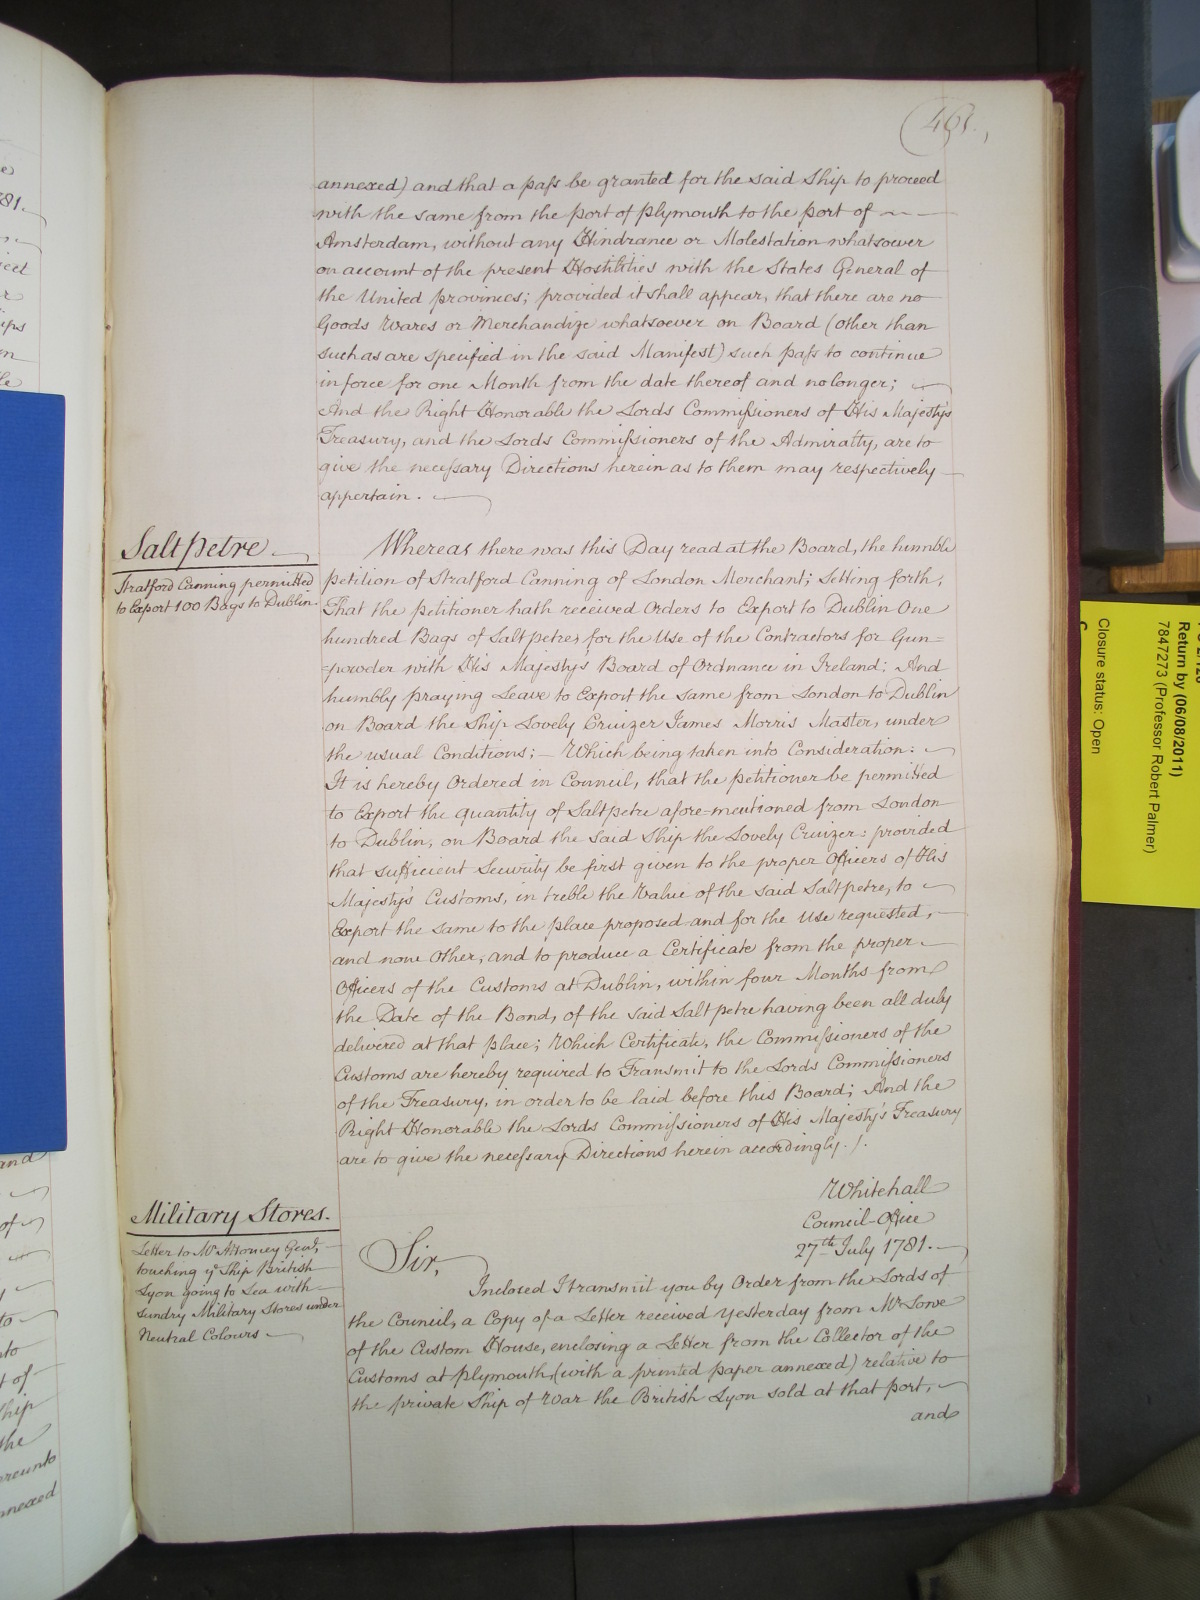 461.
annexed) and that a pass be granted for the said Ship to proceed
with the same from the port of Plymouth to the port of
Amsterdam, without any Hindrance or Molestation whatsoever
on account of the present Hostilities with the States General of
the United provinces; provided it shall appear, that there are no
Goods Wares or Merchandize whatsoever on Board (other than
such as are specified in the said Manifest) such pass to continue
in force for one Month from the date thereof and no longer;
And the Right Honorable the Lords Commissioners of His Majesty's
Treasury, and the Lords Commissioners of the Admiralty, are to
give the necessary Directions herein as to them may respectively
appertain.
Saltpetre
Stratford Canning permitted
to Export 100 Bags to Dublin.
Whereas there was this Day read at the Board, the humble
petition of Stratford Canning of London Merchant; Setting forth,
That the petitioner hath received Orders to Export to Dublin One
hundred Bags of Saltpetre, for the Use of the Contractors for Gun=
=powder with His Majesty's Board of Ordnance in Ireland; And
humbly praying Leave to Export the same from London to Dublin
on Board the Ship Lovely Cruizer James Morris Master, under
the usual Conditions; – Which being taken into Consideration:
It is hereby Ordered in Council, that the petitioner be permitted
to Export the quantity of Saltpetre afore-mentioned from London
to Dublin, on Board the said Ship the Lovely Cruizer: provided
that sufficient Security be first given to the proper Officers of His
Majesty's Customs, in treble the Value of the said Saltpetre, to
Export the same to the place proposed and for the Use requested,
and none Other, and to produce a Certificate from the proper
Officers of the Customs at Dublin, within four Months from
the Date of the Bond, of the said Saltpetre having been all duly
delivered at that place; Which Certificate, the Commissioners of the
Customs are hereby required to Transmit to the Lords Commissioners
of the Treasury, in order to be laid before this Board; And the
Right Honorable the Lords Commissioners of His Majesty's Treasury
are to give the necessary Directions herein accordingly./.
Military Stores.
Letter to Mr Attorney Genl,
touching ye Ship British
Lyon going to Sea with
sundry Military Stores under
Neutral Colours
Whitehall
Council-Office
27th July 1781.
Sir,
Inclosed I transmit you by Order from the Lords of
the Council, a Copy of a Letter received yesterday from Mr Lowe
of the Custom House, enclosing a Letter from the Collector of the
Customs at Plymouth, (with a printed paper annexed) relative to
the private Ship of War the British Lyon sold at that port,
and
Return by (06/08/2011)
7847273 (Professor Robert Palmer)
Closure status: Open